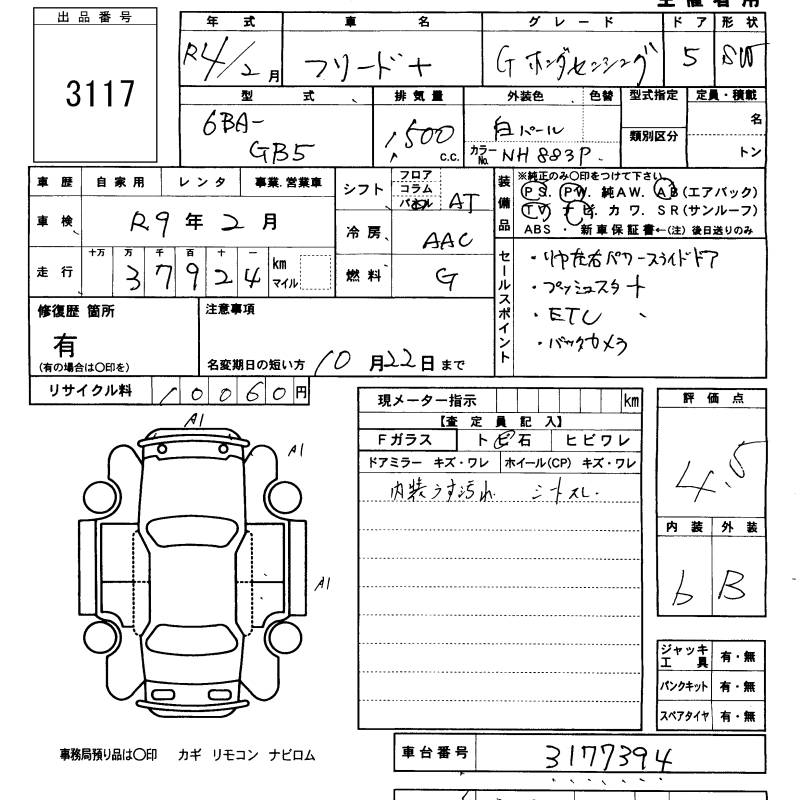 出品番号
3117
年式 車名 グレード ドア 形状
R4/2月 フリード+ G ホンダセンシング 5 SW
型式 排気量 外装色 色替 型式指定 定員・積載
6BA-GB5 1500 c.c. 白パール 類別区分 名
カラーNo. NH883P トン
車歴 自家用 レンタ 事業.営業車
車検 R9年2月
走行 十万 万 千 百 十 一
37924 km マイル
シフト フロア コラム パネル AT
冷房 AAC
燃料 G
装備品
※純正のみ〇印をつけて下さい。
PS. PW. 純AW. AB(エアバック)
TV ナビ. カワ. SR(サンルーフ)
ABS ・ 新車保証書←(注) 後日送りのみ
セールスポイント
・リヤ左右パワースライドドア
・プッシュスタート
・ETC
・バックカメラ
修復歴 箇所
有
(有の場合は〇印を)
注意事項
名変期日の短い方 10月22日まで
リサイクル料 10060円
現メーター指示 km
【査定員記入】
Fガラス ト ビ 石 ヒビワレ
ドアミラー キズ・ワレ ホイール(CP) キズ・ワレ
内装うす汚れ シートスレ
評価点
4.5
内装 外装
b B
A1
A1
A1
ジャッキ工具 有・無
パンクキット 有・無
スペアタイヤ 有・無
事務局預り品は〇印 カギ リモコン ナビロム
車台番号 3177394